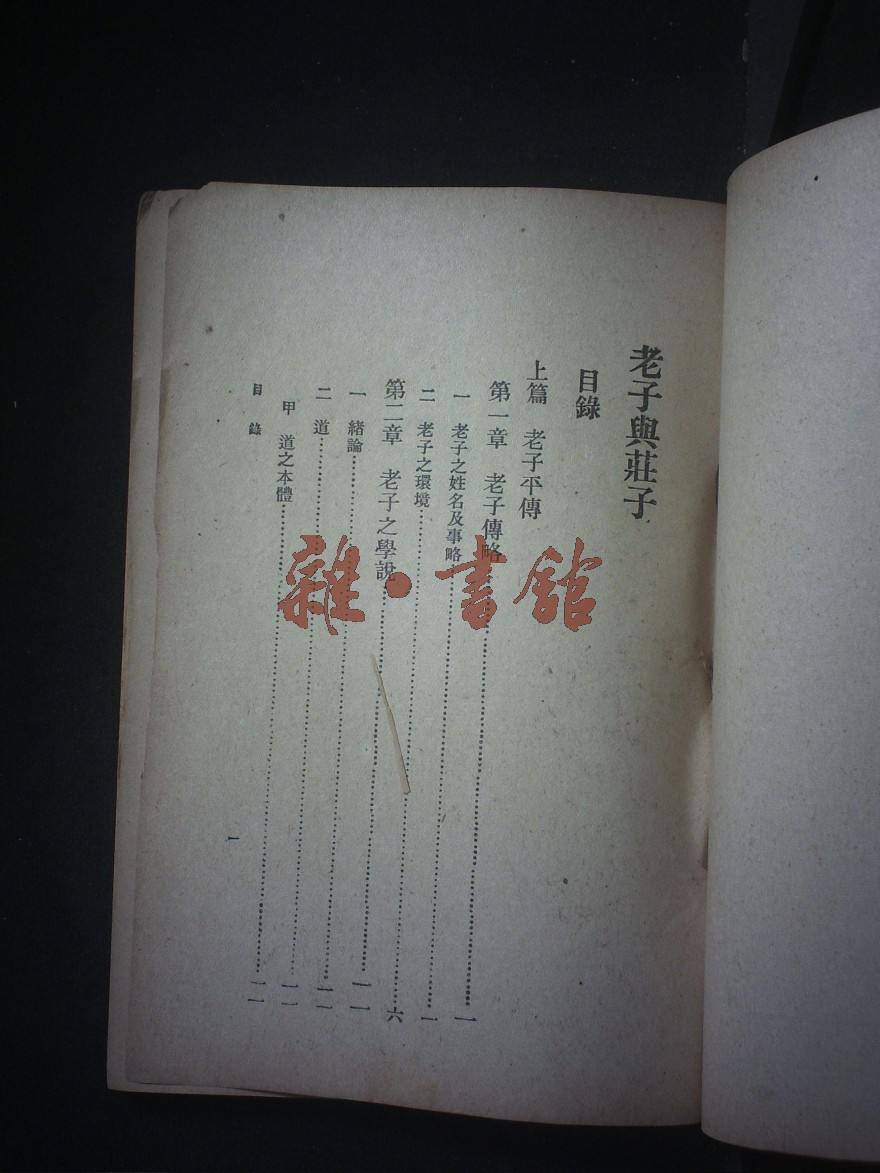 老子與莊子
目錄
上篇 老子平傳
第一章 老子傳略……一
一 老子之姓名及事略……一
二 老子之環境……六
第二章 老子之學說……一一
一 緒論……一一
二 道……一一
甲 道之本體……一一
目錄
一
雜·書館